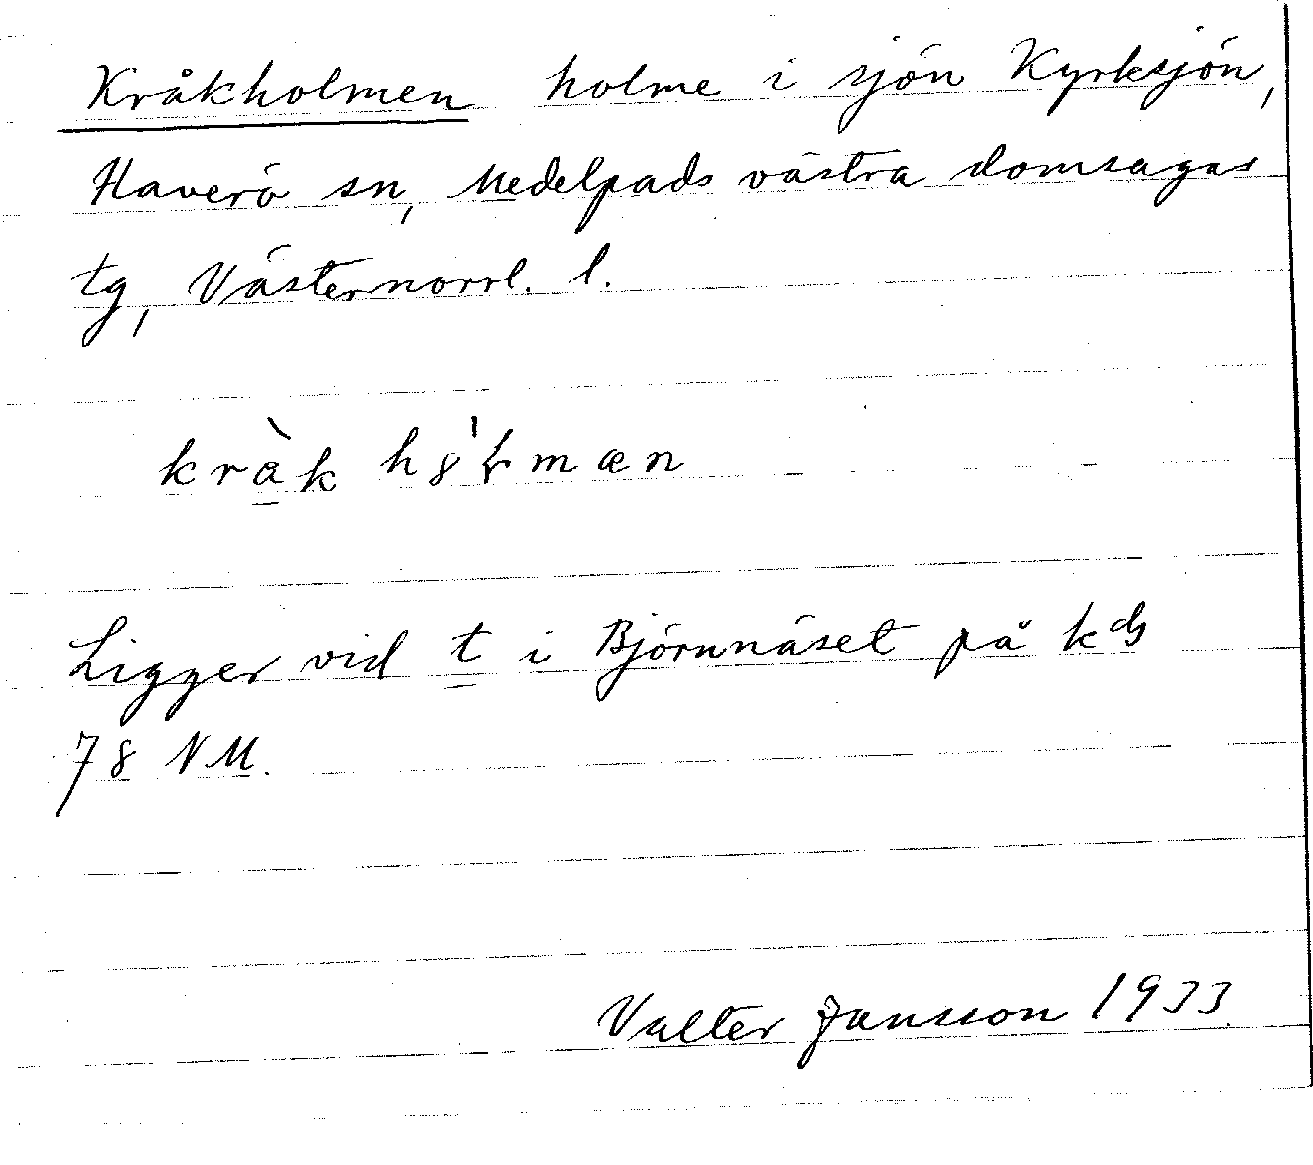 Kråkholmen holme i sjön Kyrksjön,
Haverö sn, Medelpads västra domsagas
tg, Västernorrl. l.
kràk hȣ'ɫmæn
Ligger vid t i Björnnäset på kbl
78 NM.
Valter Jansson 1933.